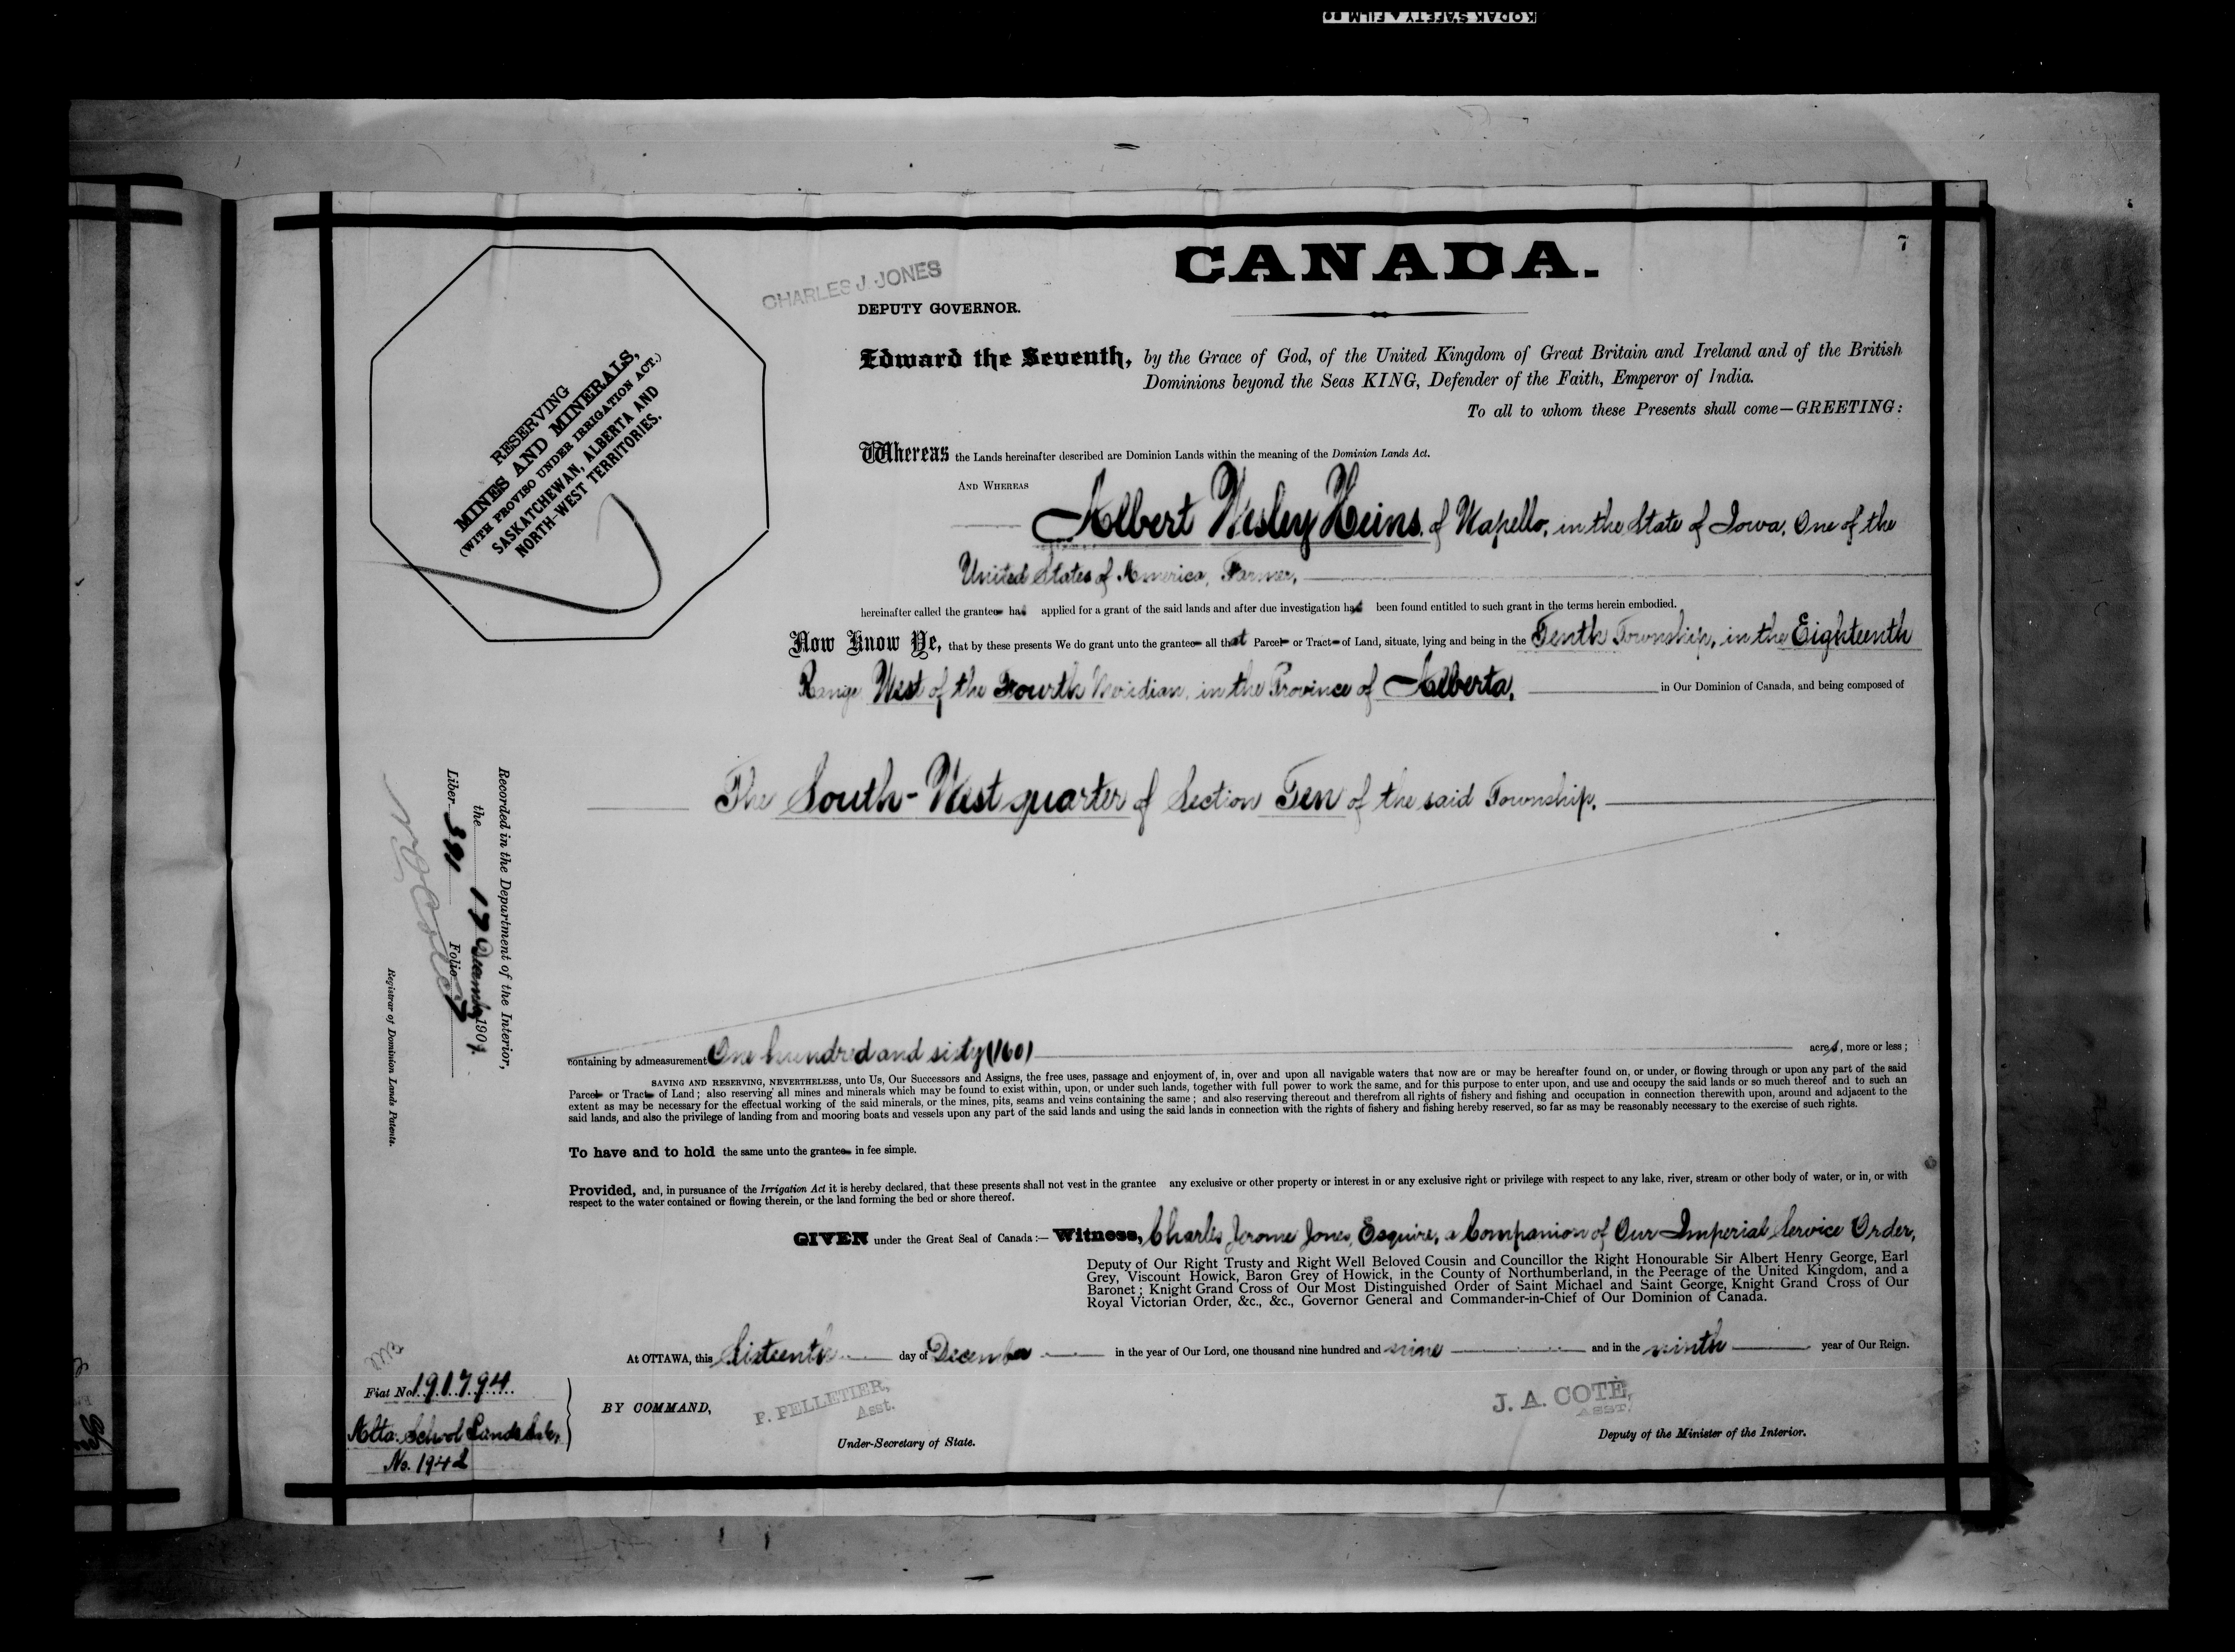 KODAK SAFETY FILM
7
CANADA.
CHARLES J. JONES
DEPUTY GOVERNOR.
RESERVING
MINES AND MINERALS,
(WITH PROVISO UNDER IRRIGATION ACT.)
SASKATCHEWAN, ALBERTA AND
NORTH-WEST TERRITORIES.
Edward the Seventh, by the Grace of God, of the United Kingdom of Great Britain and Ireland and of the British
Dominions beyond the Seas KING, Defender of the Faith, Emperor of India.
To all to whom these Presents shall come—GREETING:
Whereas the Lands hereinafter described are Dominion Lands within the meaning of the Dominion Lands Act.
AND WHEREAS
Albert Wesley Heins, of Wapello, in the State of Iowa, One of the
United States of America, Farmer,
hereinafter called the grantee has applied for a grant of the said lands and after due investigation has been found entitled to such grant in the terms herein embodied.
Now Know Ye, that by these presents We do grant unto the grantee all that Parcel or Tract of Land, situate, lying and being in the Tenth Township, in the Eighteenth
Range West of the Fourth Meridian, in the Province of Alberta, in Our Dominion of Canada, and being composed of
The South-West quarter of Section Ten of the said Township.
Recorded in the Department of the Interior,
the 17 December 1909.
Liber 391 Folio 7
Registrar of Dominion Lands Patents.
containing by admeasurement One hundred and sixty (160) acres, more or less;
SAVING AND RESERVING, NEVERTHELESS, unto Us, Our Successors and Assigns, the free uses, passage and enjoyment of, in, over and upon all navigable waters that now are or may be hereafter found on, or under, or flowing through or upon any part of the said
Parcel or Tract of Land; also reserving all mines and minerals which may be found to exist within, upon, or under such lands, together with full power to work the same, and for this purpose to enter upon, and use and occupy the said lands or so much thereof and to such an
extent as may be necessary for the effectual working of the said minerals, or the mines, pits, seams and veins containing the same; and also reserving thereout and therefrom all rights of fishery and fishing and occupation in connection therewith upon, around and adjacent to the
said lands, and also the privilege of landing from and mooring boats and vessels upon any part of the said lands and using the said lands in connection with the rights of fishery and fishing hereby reserved, so far as may be reasonably necessary to the exercise of such rights.
To have and to hold the same unto the grantee in fee simple.
Provided, and, in pursuance of the Irrigation Act it is hereby declared, that these presents shall not vest in the grantee any exclusive or other property or interest in or any exclusive right or privilege with respect to any lake, river, stream or other body of water, or in, or with
respect to the water contained or flowing therein, or the land forming the bed or shore thereof.
GIVEN under the Great Seal of Canada:— Witness, Charles Jerome Jones, Esquire, a Companion of Our Imperial Service Order,
Deputy of Our Right Trusty and Right Well Beloved Cousin and Councillor the Right Honourable Sir Albert Henry George, Earl
Grey, Viscount Howick, Baron Grey of Howick, in the County of Northumberland, in the Peerage of the United Kingdom, and a
Baronet; Knight Grand Cross of Our Most Distinguished Order of Saint Michael and Saint George, Knight Grand Cross of Our
Royal Victorian Order, &c., &c., Governor General and Commander-in-Chief of Our Dominion of Canada.
At OTTAWA, this Sixteenth day of December in the year of Our Lord, one thousand nine hundred and nine and in the ninth year of Our Reign.
Fiat No. 191794
Alta. School Lands Sale,
No. 1942
BY COMMAND,
P. PELLETIER,
Asst.
Under-Secretary of State.
J. A. COTÉ,
ASST.
Deputy of the Minister of the Interior.